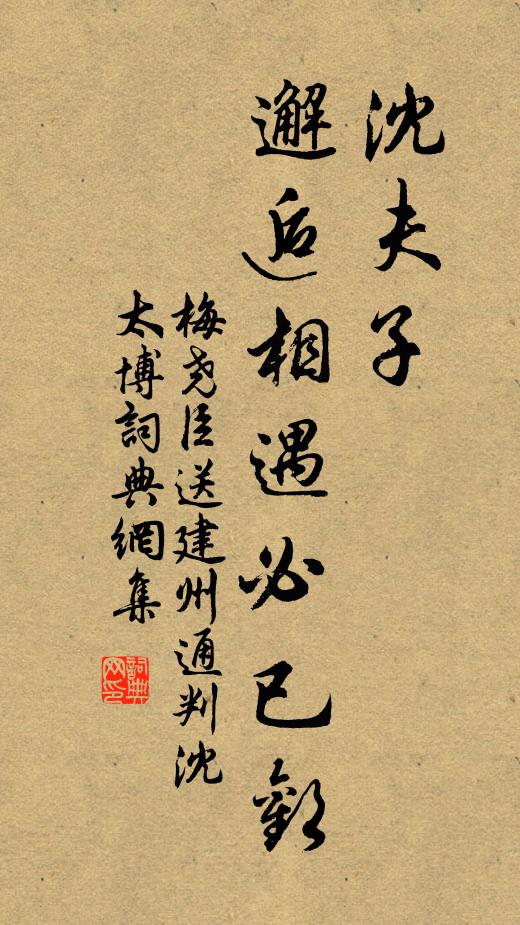 沈夫子
邂逅相遇必已歡
梅堯臣送建州通判沈
太博詞典網集
詞典
网印